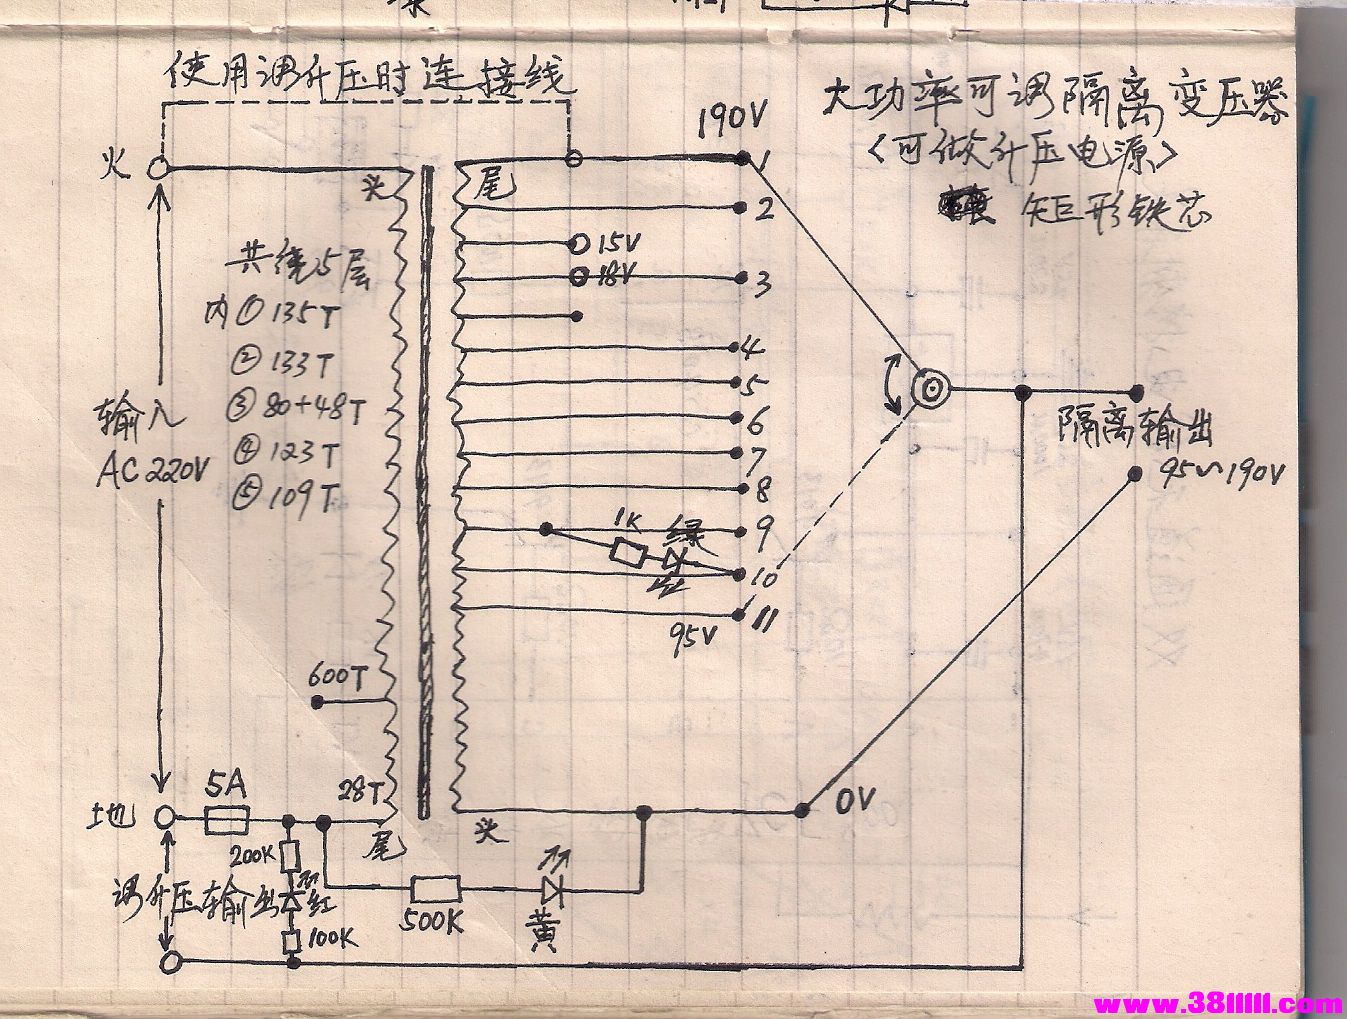 使用调升压时连接线
大功率可调隔离变压器
<可做升压电源>
矩形铁芯
190V
火
头
尾
1
2
15V
18V
3
4
5
6
7
8
9
10
11
共绕5层
内① 135T
② 133T
③ 80+48T
④ 123T
⑤ 109T
输入
AC 220V
隔离输出
95~190V
1K
绿
95V
600T
28T
5A
地
尾
头
0V
200K
调升压输出
红
100K
500K
黄
www.38lllll.com